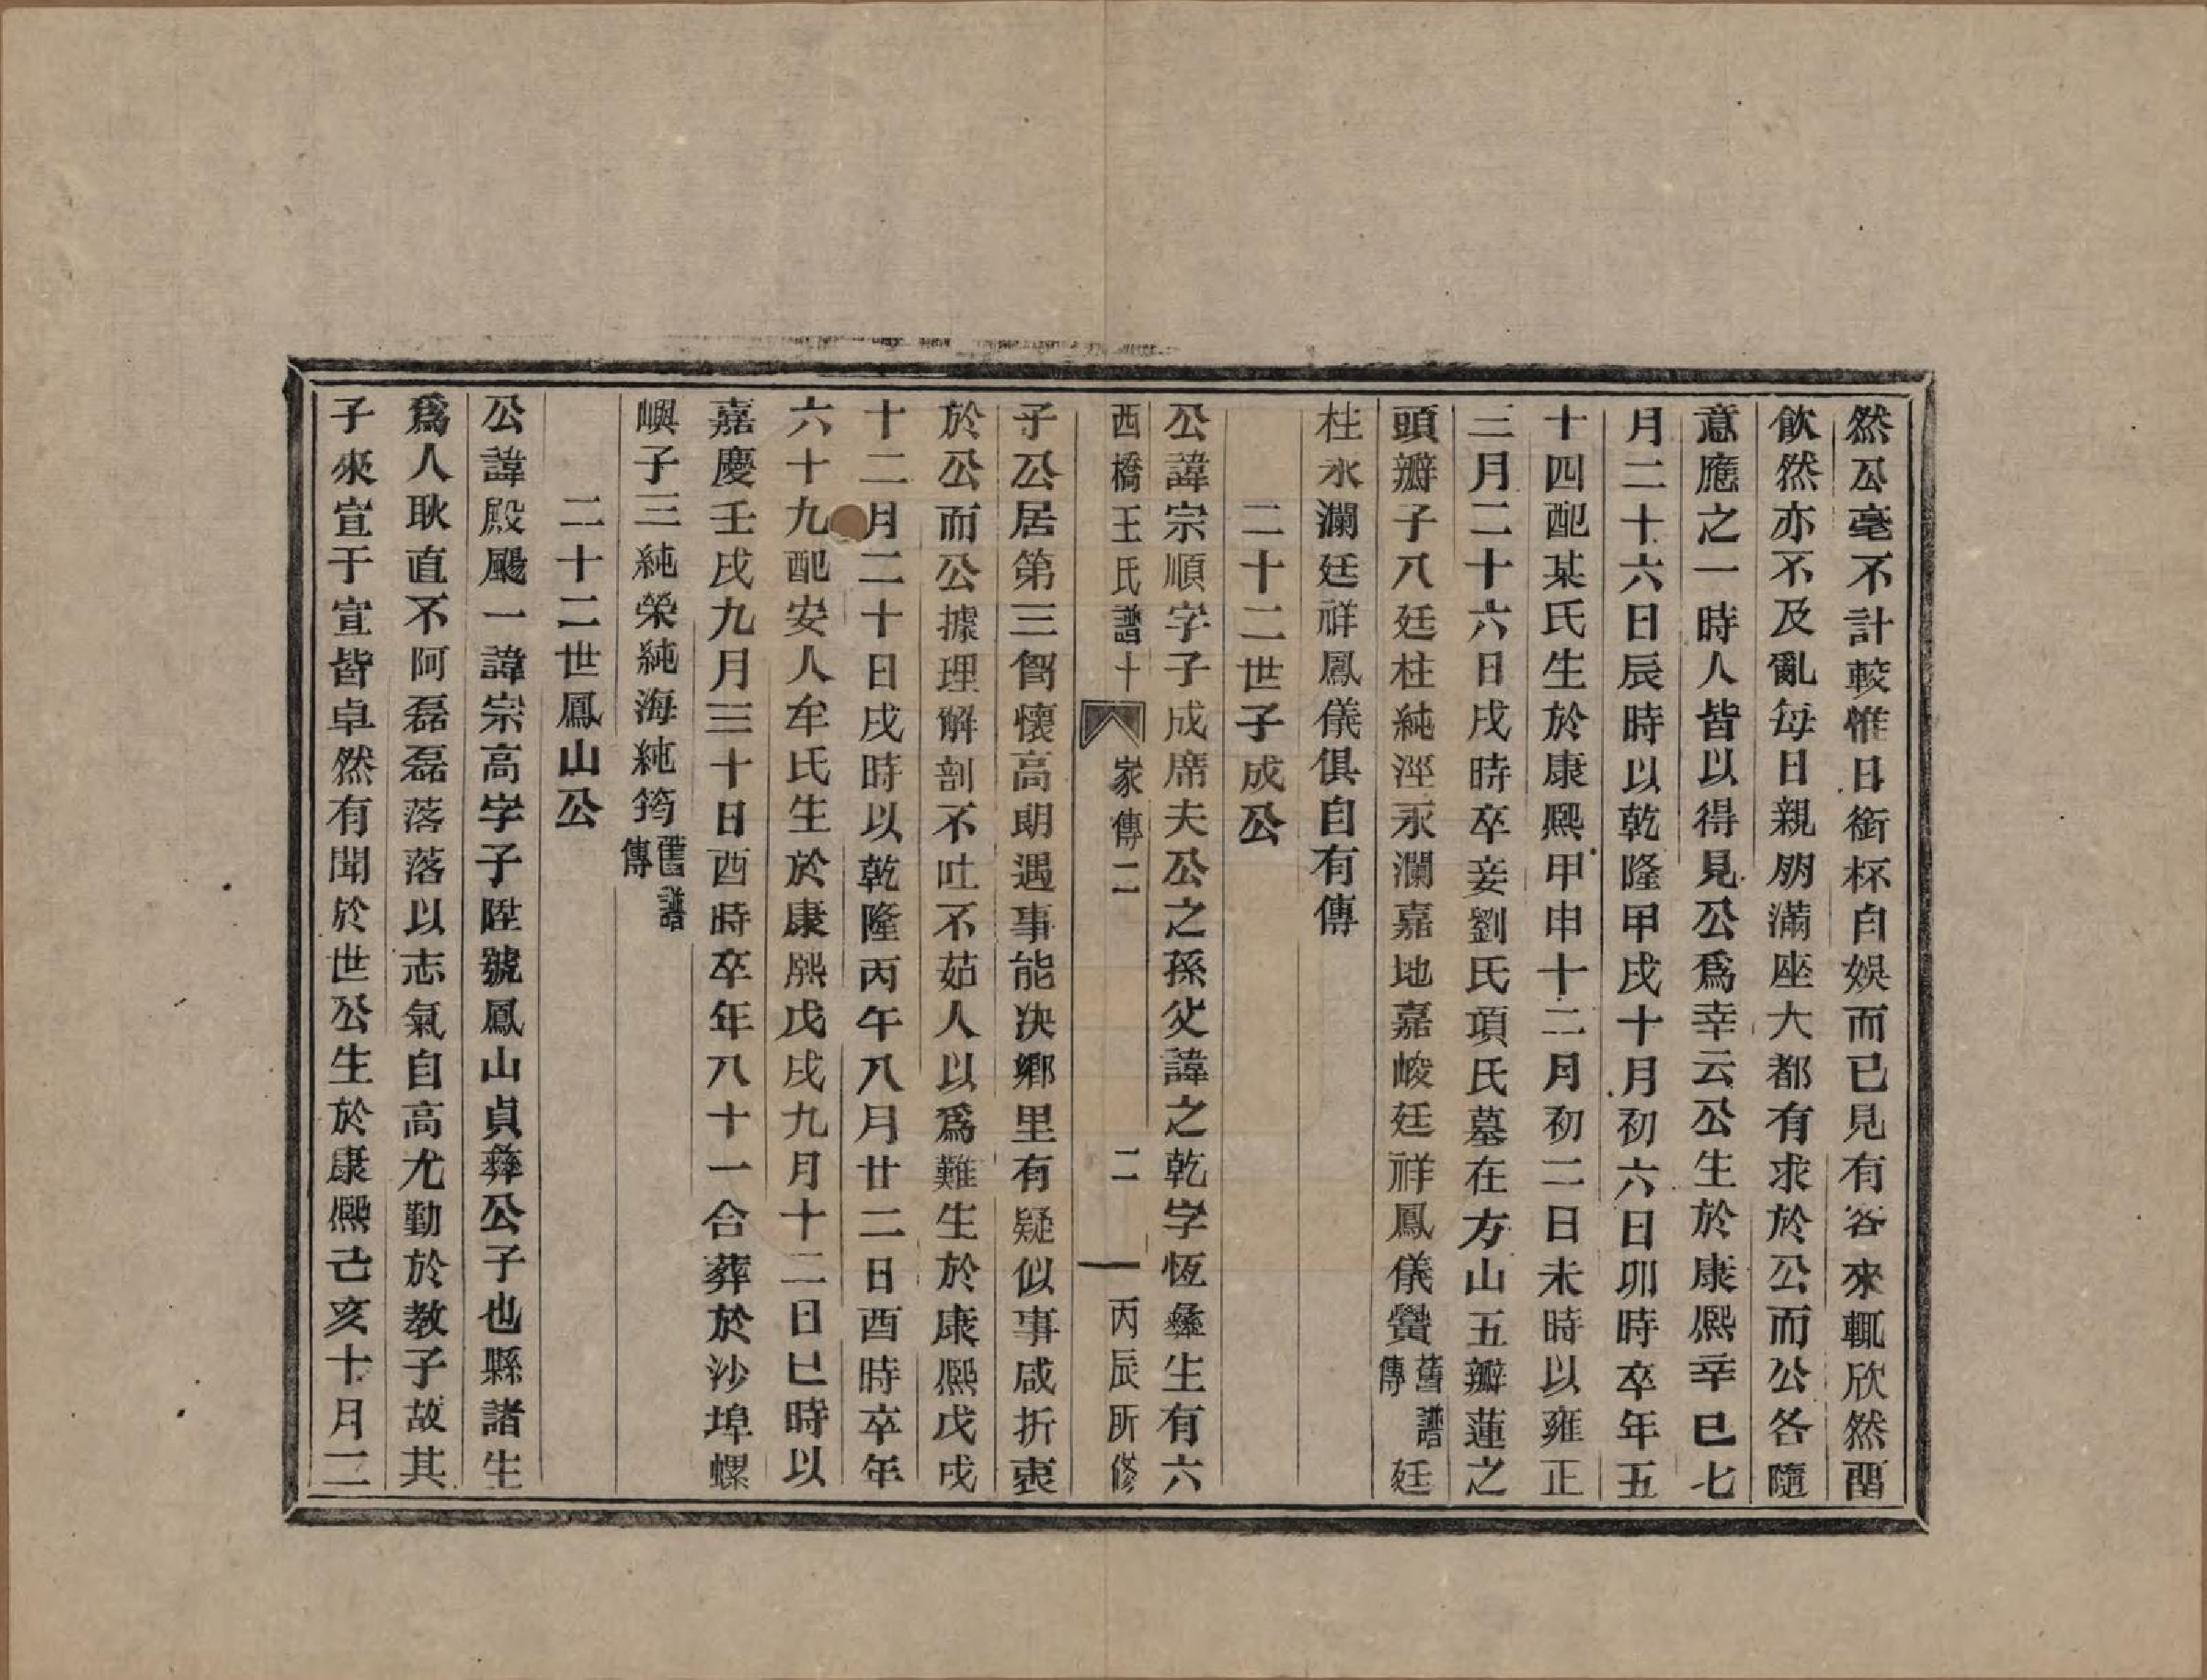 然公毫不計較惟日銜杯自娛而已見有客來輒欣然畱
飲然亦不及亂每日親朋滿座大都有求於公而公各隨
意應之一時人皆以得見公爲幸云公生於康熙辛巳七
月二十六日辰時以乾隆甲戌十月初六日卯時卒年五
十四配某氏生於康熙甲申十二月初二日未時以雍正
三月二十六日戌時卒妾劉氏項氏墓在方山五瓣蓮之
頭瓣子八廷柱純涇永瀾嘉地嘉峻廷祥鳳儀鸒舊譜傳廷
柱永瀾廷祥鳳儀俱自有傳
二十二世子成公
公諱宗順字子成席夫公之孫父諱之乾字恆彝生有六
西橋王氏譜十 家傳二 二 丙辰所修
子公居第三智懷高朗遇事能決鄉里有疑似事咸折衷
於公而公據理解剖不吐不茹人以爲難生於康熙戊戌
十二月二十日戌時以乾隆丙午八月廿二日酉時卒年
六十九配安人牟氏生於康熙戊戌九月十二日巳時以
嘉慶壬戌九月三十日酉時卒年八十一合葬於沙埠螺
嶼子三純榮純海純筠舊譜傳
二十二世鳳山公
公諱殿颺一諱宗高字子陞號鳳山貞彝公子也縣諸生
爲人耿直不阿磊磊落落以志氣自高尤勤於教子故其
子來宣于宣皆卓然有聞於世公生於康熙己亥十月二